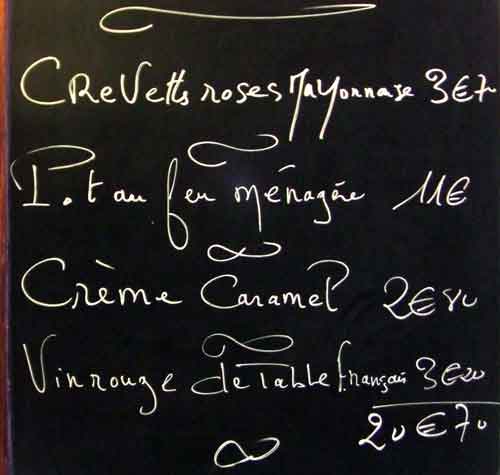 CReVetts roses Mayonnaise 3€7
Pot au feu ménagère 11€
Crème Caramel 2€80
Vin rouge de Table français 3€20
20€70